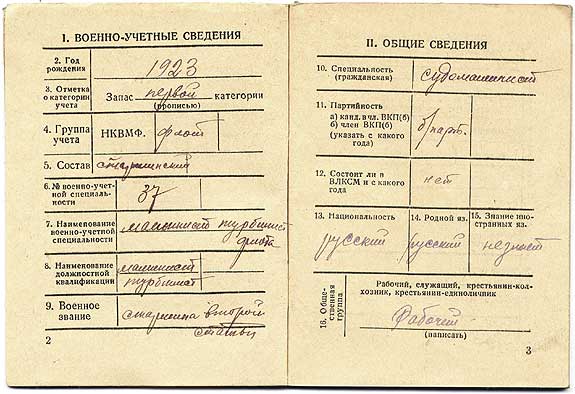 I. ВОЕННО-УЧЕТНЫЕ СВЕДЕНИЯ
2. Год
рождения
1923
3. Отметка
о категории
учета
Запас первой категории
(прописью)
4. Группа
учета
НКВМФ.
флот
5. Состав
старшинский
6. № военно-учет-
ной специаль-
ности
37
7. Наименование
военно-учетной
специальности
машинист турбинист
флота
8. Наименование
должностной
квалификации
машинист
турбинист
9. Военное
звание
старшина второй
статьи
2
II. ОБЩИЕ СВЕДЕНИЯ
10. Специальность
(гражданская)
судомашинист
11. Партийность
а) канд. в чл. ВКП(б)
б) член ВКП(б)
(указать с какого
года)
б/парт.
12. Состоит ли в
ВЛКСМ и с какого
года
нет
13. Национальность
русский
14. Родной яз.
русский
15. Знание ино-
странных яз.
не знает
16. Обще-
ственная
группа
Рабочий, служащий, крестьянин-кол-
хозник, крестьянин-единоличник
Рабочий
(написать)
3